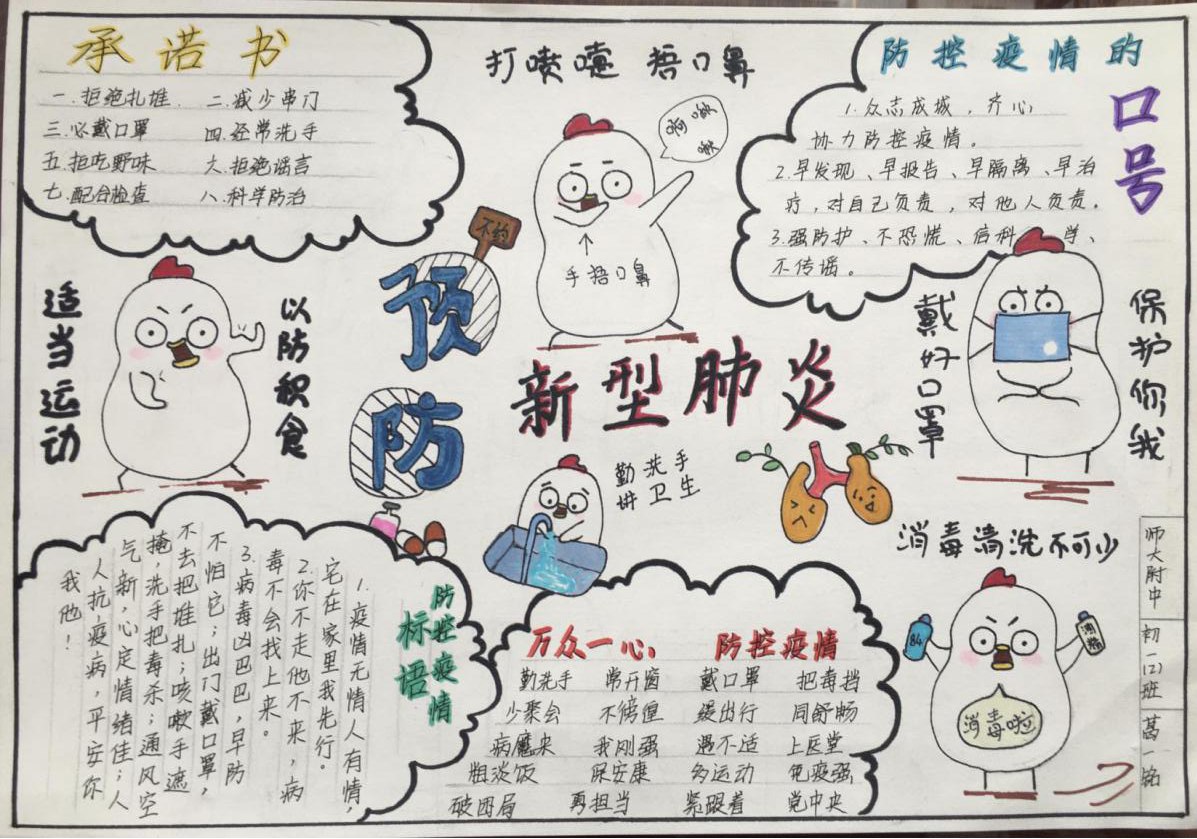 承诺书
一.拒绝扎堆. 二.减少串门
三.必戴口罩 四.经常洗手
五.拒吃野味 六.拒绝谣言
七.配合检查 八.科学防治
打喷嚏 捂口鼻
啊啾
啾
手捂口鼻
防控疫情的
口号
1.众志成城,齐心
协力防控疫情。
2.早发现、早报告、早隔离、早治
疗,对自己负责,对他人负责。
3.强防护、不恐慌、信科学、
不传谣。
适当运动
以防积食
不约
预防
新型肺炎
戴好口罩
保护你我
勤洗手
讲卫生
消毒清洗不可少
84
酒精
消毒啦
防控疫情
标语
1.疫情无情人有情,
宅在家里我先行。
2.你不走他不来,病
毒不会找上来。
3.病毒凶巴巴,早防
不怕它;出门戴口罩,
不去把堆扎;咳嗽手遮
掩,洗手把毒杀;通风空
气新,心定情绪佳;人
人抗疫病,平安你
我他!
万众一心 防控疫情
勤洗手 常开窗 戴口罩 把毒挡
少聚会 不徬徨 缓出行 同舒畅
病魔来 我刚强 遇不适 上医堂
粗淡饭 保安康 多运动 免疫强
破困局 勇担当 紧跟着 党中央
师大附中
初一(2)班
一铭